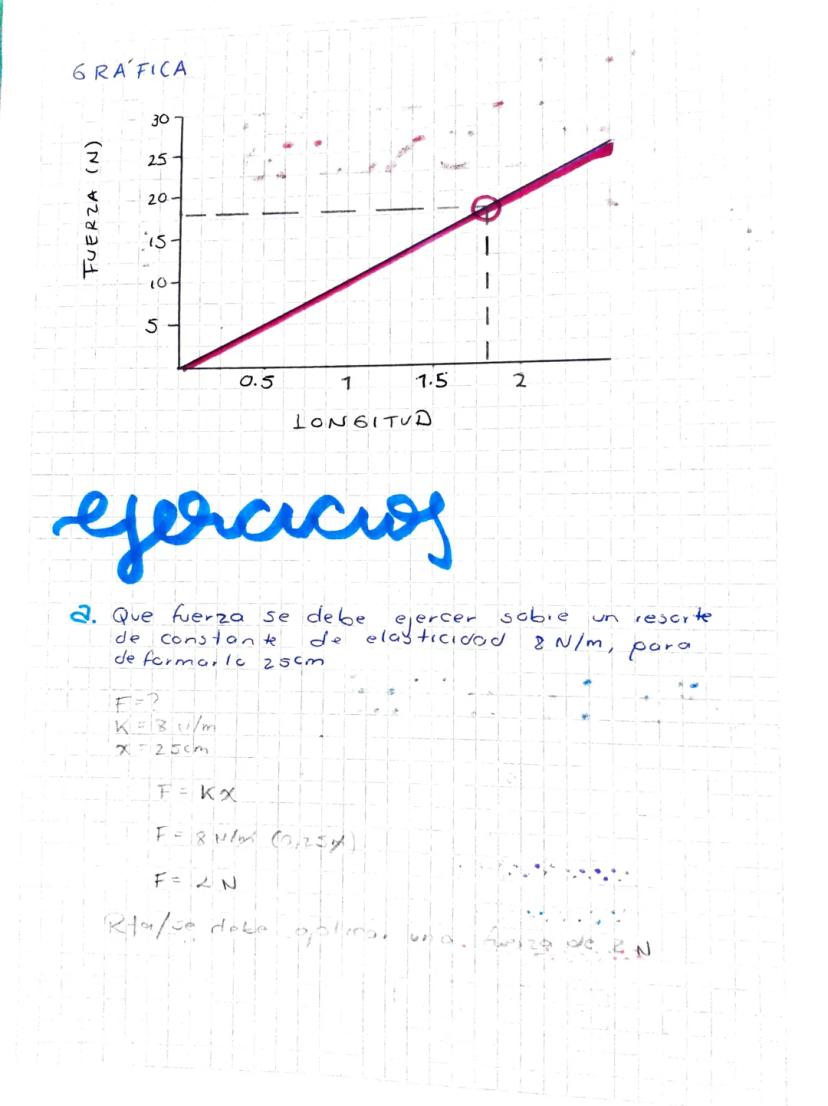 GRÁFICA
FUERZA (N)
30
25
20
15
10
5
0.5 1 1.5 2
LONGITUD
ejercicios
a. Que fuerza se debe ejercer sobre un resorte
de constante de elasticidad 8 N/m, para
deformarlo 25cm
F = ?
K = 8 N/m
x = 25cm
F = Kx
F = 8 N/m (0,25m)
F = 2 N
Rta/se debe aplicar una fuerza de 2 N